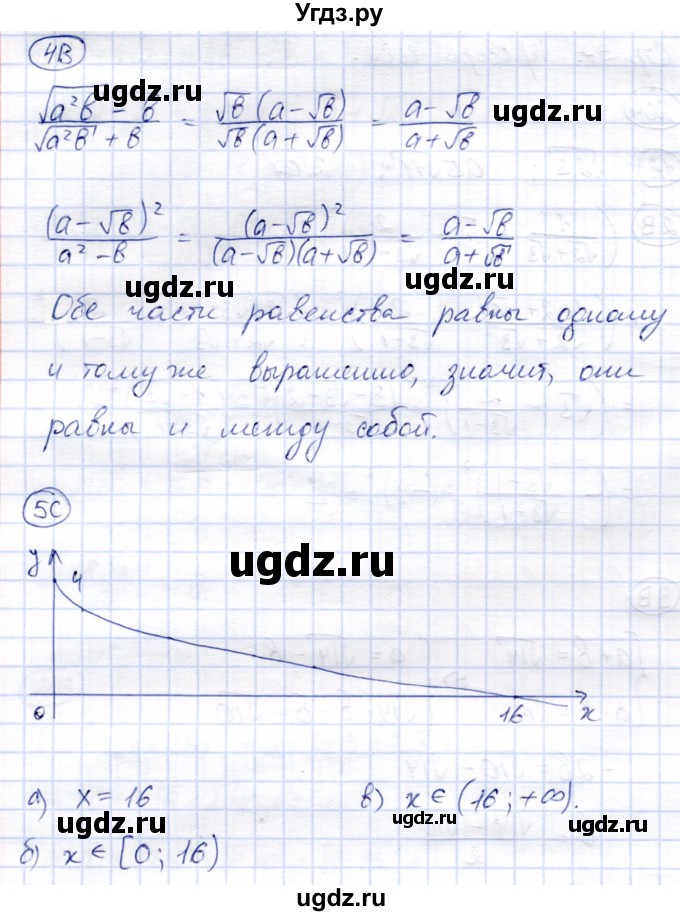 Угдз.ру
4В
(√(a²в) - в)/(√(a²в) + в) = (√в (a-√в))/(√в (a+√в)) = (a-√в)/(a+√в)
ugdz.ru
ugdz.ru
ugdz.ru
(a-√в)²/(a²-в) = (a-√в)²/((a-√в)(a+√в)) = (a-√в)/(a+√в)
ugdz.ru
ugdz.ru
Обе части равенства равны одному
и тому же выражению, значит, они
равны и между собой.
5С
ugdz.ru
y
4
0
16
x
а) x = 16
в) x ∈ (16; +∞).
ugdz.ru
ugdz.ru
ugdz.ru
б) x ∈ [0; 16)
ugdz.ru